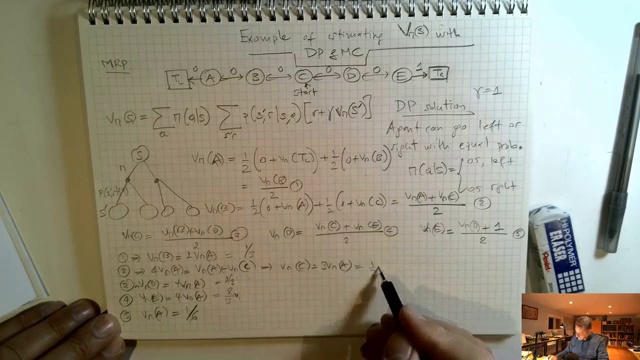 Example of estimating Vπ(s) with
DP & MC
MRP
TL ←0 A ⟷0 B ⟷0 C ⟷0 D ⟷0 E →1 TR
start
Vπ(s) = Σa π(a|s) Σs',r p(s',r|s,a) [r + γ Vπ(s')]
DP solution γ=1
Agent can go left or
right with equal prob.
π(a|s) = { 0.5, left
0.5 right
S
π
Vπ(A) = 1/2 (0 + Vπ(TL)) + 1/2 (0 + Vπ(B))
= Vπ(B)/2 ①
Vπ(B) = 1/2 (0 + Vπ(A)) + 1/2 (0 + Vπ(C)) = (Vπ(A) + Vπ(C))/2 ②
Vπ(C) = (Vπ(B) + Vπ(D))/2 ③ Vπ(D) = (Vπ(C) + Vπ(E))/2 ④ Vπ(E) = (Vπ(D) + 1)/2 ⑤
① ⇒ Vπ(B) = 2Vπ(A) = 1/3
② ⇒ 4Vπ(A) = Vπ(A) + Vπ(C) ⇒ Vπ(C) = 3Vπ(A) = 1/
③ Vπ(D) = 4Vπ(A)
④ Vπ(E)
⑤ Vπ(A) = 1/6
PENTEL
HI-POLYMER
ERASER